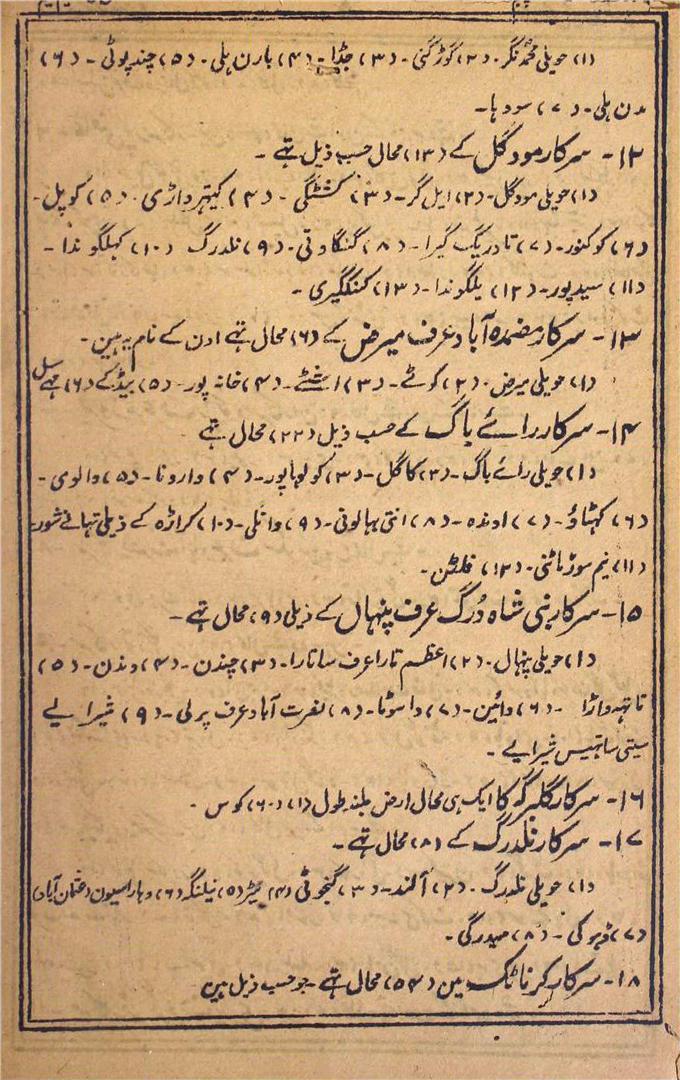 (۱) حویلی محمد نگر۔ (۲) گوڑگنی۔ (۳) جڈا۔ (۴) بارن ہلی۔ (۵) چندپوٹی۔ (۶)
مدن ہلی۔ (۷) سودہا۔
۱۲- سرکار مودگل کے (۱۳) محال حسب ذیل تھے۔
(۱) حویلی مودگل۔ (۲) ایل گر۔ (۳) کشٹگی۔ (۴) کیتہرواڑی۔ (۵) کوپل۔
(۶) کوکنور۔ (۷) تادریگ گیرا۔ (۸) گنگاوتی۔ (۹) نلدرگ (۱۰) کبلگوندا۔
(۱۱) سیدپور۔ (۱۲) یلگوندا۔ (۱۳) کنکگیری۔
۱۳- سرکار آباد عرف میرض کے (۶) محال تھے اون کے نام یہ ہین۔
(۱) حویلی میرض۔ (۲) کوٹے۔ (۳) اشٹے۔ (۴) خانہ پور۔ (۵) بیڑکے (۶)
۱۴- سرکار رائے باگ کے حسب ذیل (۲۲) محال تھے
(۱) حویلی رائے باگ۔ (۲) کاگل۔ (۳) کولہاپور۔ (۴) وارونا۔ (۵) والوی۔
(۶) کہٹاؤ۔ (۷) اوندہ۔ (۸) انتی بہالونی۔ (۹) وانلی۔ (۱۰) کراڑہ کے ذیلی تہانے شور۔
(۱۱) نیم سوڑ ماٹنی۔ (۱۲) فلٹن۔
۱۵- سرکار بنی شاہ دُرگ عرف پنہال کے ذیلی (۹) محال تھے۔
(۱) حویلی پنہال۔ (۲) اعظم تارا عرف ساتارا۔ (۳) چندن۔ (۴) وندن۔ (۵)
تاتہہ واڑا۔ (۶) وائین۔ (۷) واسوٹا۔ (۸) نفرت آباد عرف پرلی۔ (۹) شیرالے
سیتی ساتہیس شیرالے۔
۱۶- سرکار گلبرگہ کا ایک ہی محال ارض بلند طول (۱) (۶۰) کوس۔
۱۷- سرکار نلدرگ کے (۸) محال تھے۔
(۱) حویلی نلدرگ۔ (۲) آلند۔ (۳) گنجوٹی (۴) (۵) نیلنگہ (۶) وہاراسیون (عثمان آباد)
(۷) ڈہوکی۔ (۸) میدرگی۔
۱۸- سرکار کرناٹک مین (۵۴) محال تھے۔ جو حسب ذیل ہین